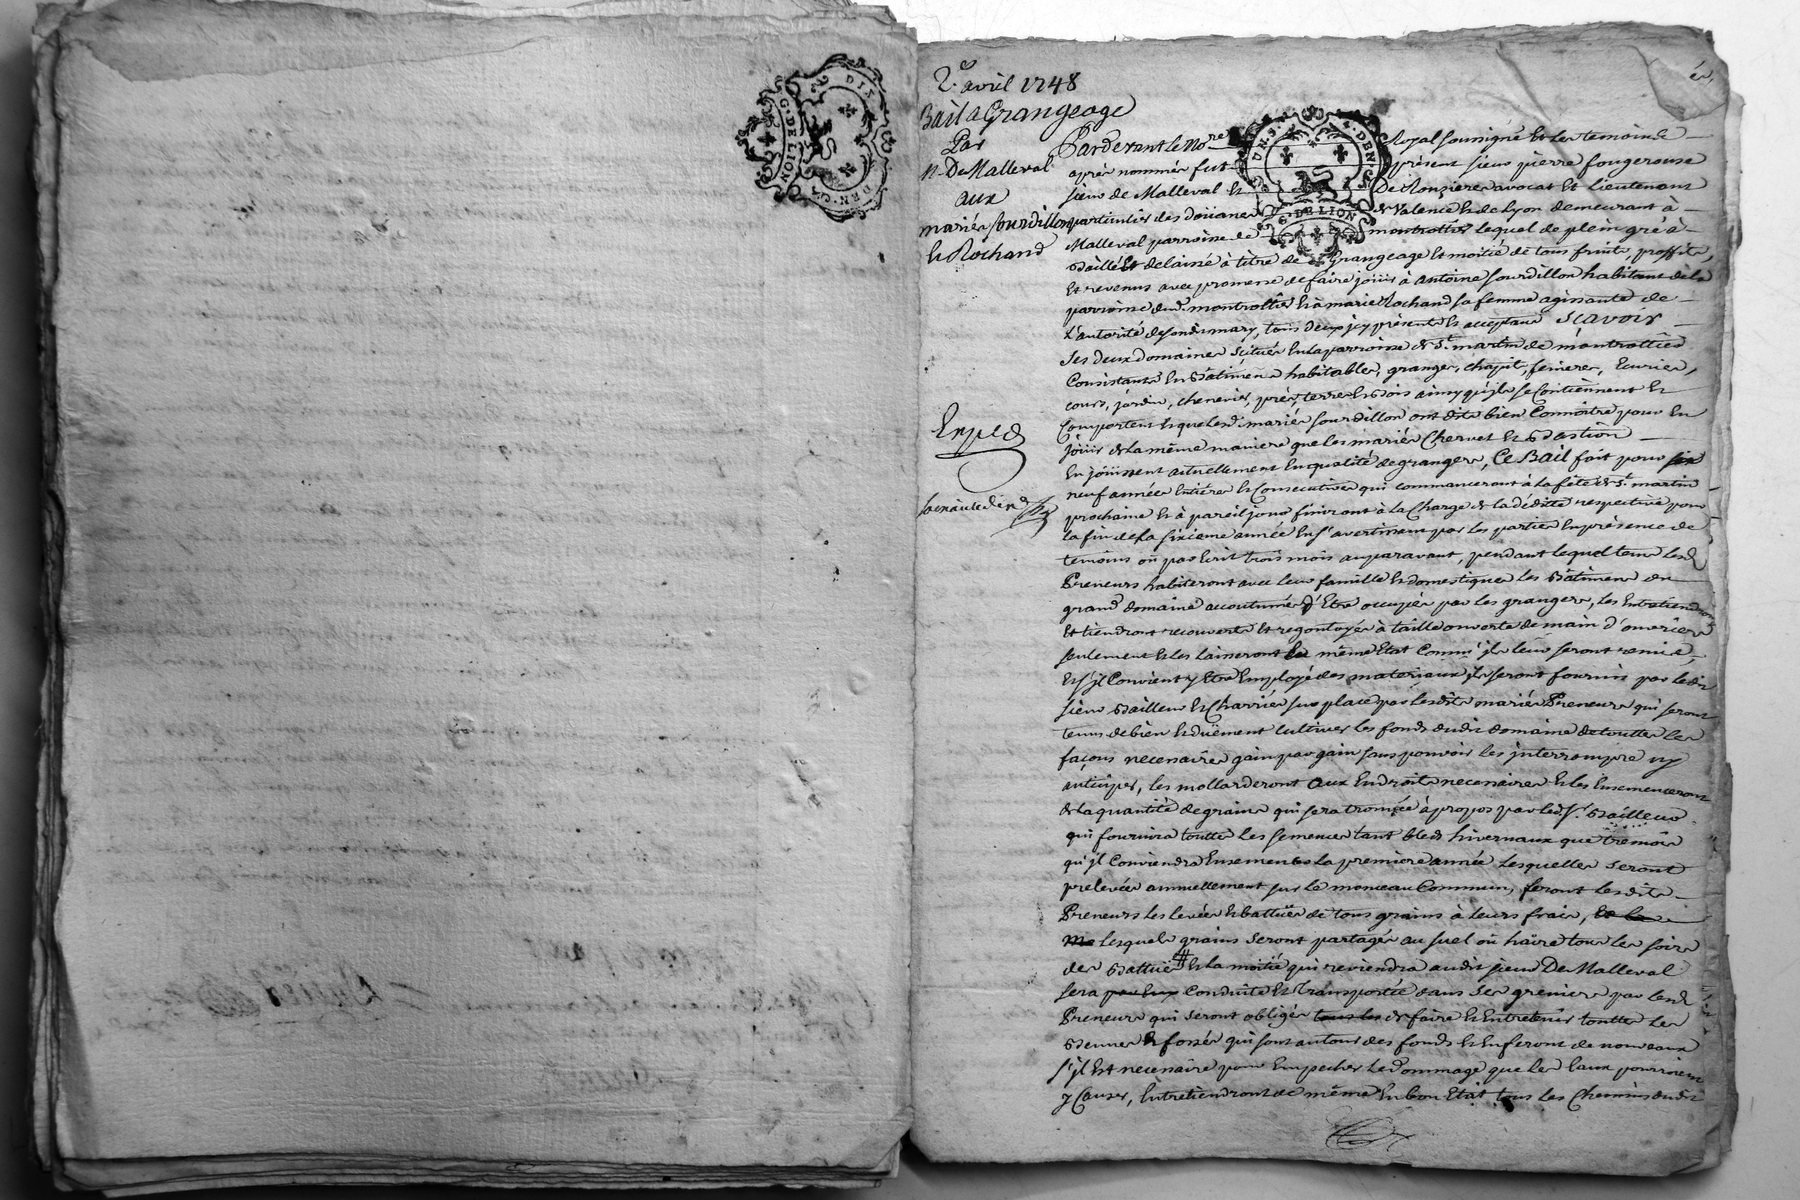 DIX
G. DE LION
DEN.
2e avril 1748
Bail a Grangeage
Par
Sr De Malleval
aux
mariés Sourdillon
et Rochand
UN S.
DEN.
G. DE LION
Pardevant le Nore Royal soussigné et les temoins
après nommés fut présent sieur pierre fougerouse
sieur de Malleval et De Ronzieres avocat et Lieutenant
particulier des doüanes de Valence et de Lyon demeurant à
Malleval parroisse de montrottier lequel de plein gré à
Baillé et delaissé à titre de Grangeage et moitié de tous fruits, proffits,
et revenus avec promesse de faire joüir à antoine Sourdillon habitant de la
parroisse dud. montrottier et à marie Rochand sa femme agissante de
L'autorité de sondit mary, tous deux icy présents et acceptans Scavoir
Ses deux domaines scitués en la parroisse de St. martin de montrottier
Consistants en Bâtimens habitables, granges, chapit, feinieres, Ecuries,
cours, jardin, chenevier, prés, terres et Bois ainsy qu'ils se Contiennent et
Comportent et que lesd. mariés Sourdillon ont dit bien Connoitre pour en
joüir de la même maniere que les mariés Chervet et Bastion
En joüissent actuellement en qualité de grangers, Ce Bail fait pour
neuf années Entières et Consecutives qui commenceront à la fête de St. martin
prochaine et à pareil jour finiront à la Charge de la déditte respective pour
la fin de la sixieme année en s'avertissant par les parties En présence de
temoins ou par Ecrit trois mois auparavant, pendant lequel tems lesd.
Preneurs habiteront avec leur famille et domestiques les Bâtimens du
grand domaine accoutumés d'Etre occupés par les grangers, les Entretiendront
et tiendront recouverts et regoutoyés à taille ouverte de main d'ouvriers
seulement et les laisseront en même Etat Comm'ils leur seront remis,
et s'il Convient y Etre Employé des materiaux ils seront fournis par ledit
sieur Bailleur et Charriés sur place par lesdits mariés Preneurs qui seront
tenus de bien et duëment Cultiver les fonds dudit domaine de touttes les
façons necessaires gain par gain sans pouvoir les interrompre ny
anticiper, les mollarderont aux Endroits necessaires et les Ensemenceront
de la quantité de grains qui sera trouvée à propos par led. Sr. Bailleur
qui fournira touttes les semences tant bleds hivernaux que trémois
qu'il Conviendra Ensemencer la premiere année Lesquelles seront
prelevées annuellement sur le monceau Commun, feront lesdits
Preneurs les levées et battües de tous grains à Leurs frais,
Lesquels grains seront partagés au suel ou haire tous les soirs
des Battües # et la moitié qui reviendra audit sieur De Malleval
sera conduitte et Transportée dans ses greniers par lesd.
Preneurs qui seront obligés de faire et Entretenir touttes les
et fossés qui sont autour des fonds et en feront de nouveaux
s'il est necessaire pour Empecher le Dommage que les Eaux pourroient
y Causer, Entretiendront de même En bon Etat tous les Chemins dudit